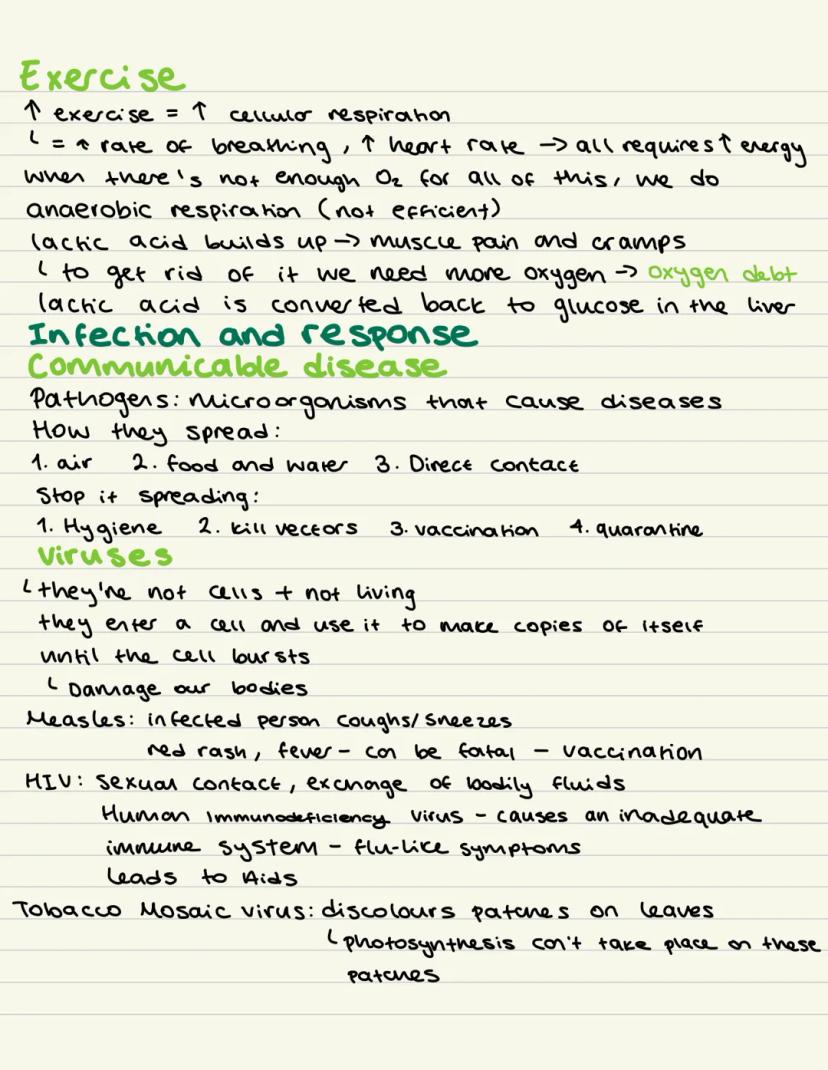 Exercise
↑ exercise = ↑ cellular respiration
└ = ↑ rate of breathing, ↑ heart rate → all requires ↑ energy
when there's not enough O₂ for all of this, we do
anaerobic respiration (not efficient)
lactic acid builds up → muscle pain and cramps
└ to get rid of it we need more oxygen → oxygen debt
lactic acid is converted back to glucose in the liver
Infection and response
Communicable disease
Pathogens: microorganisms that cause diseases
How they spread:
1. air 2. food and water 3. Direct contact
Stop it spreading:
1. Hygiene 2. kill vectors 3. vaccination 4. quarantine
Viruses
└ they're not cells + not living
they enter a cell and use it to make copies of itself
until the cell bursts
└ Damage our bodies
Measles: infected person coughs/sneezes
red rash, fever - can be fatal - vaccination
HIV: sexual contact, exchange of bodily fluids
Human Immunodeficiency virus - causes an inadequate
immune system - flu-like symptoms
leads to Aids
Tobacco Mosaic virus: discolours patches on leaves
└ photosynthesis can't take place on these
patches